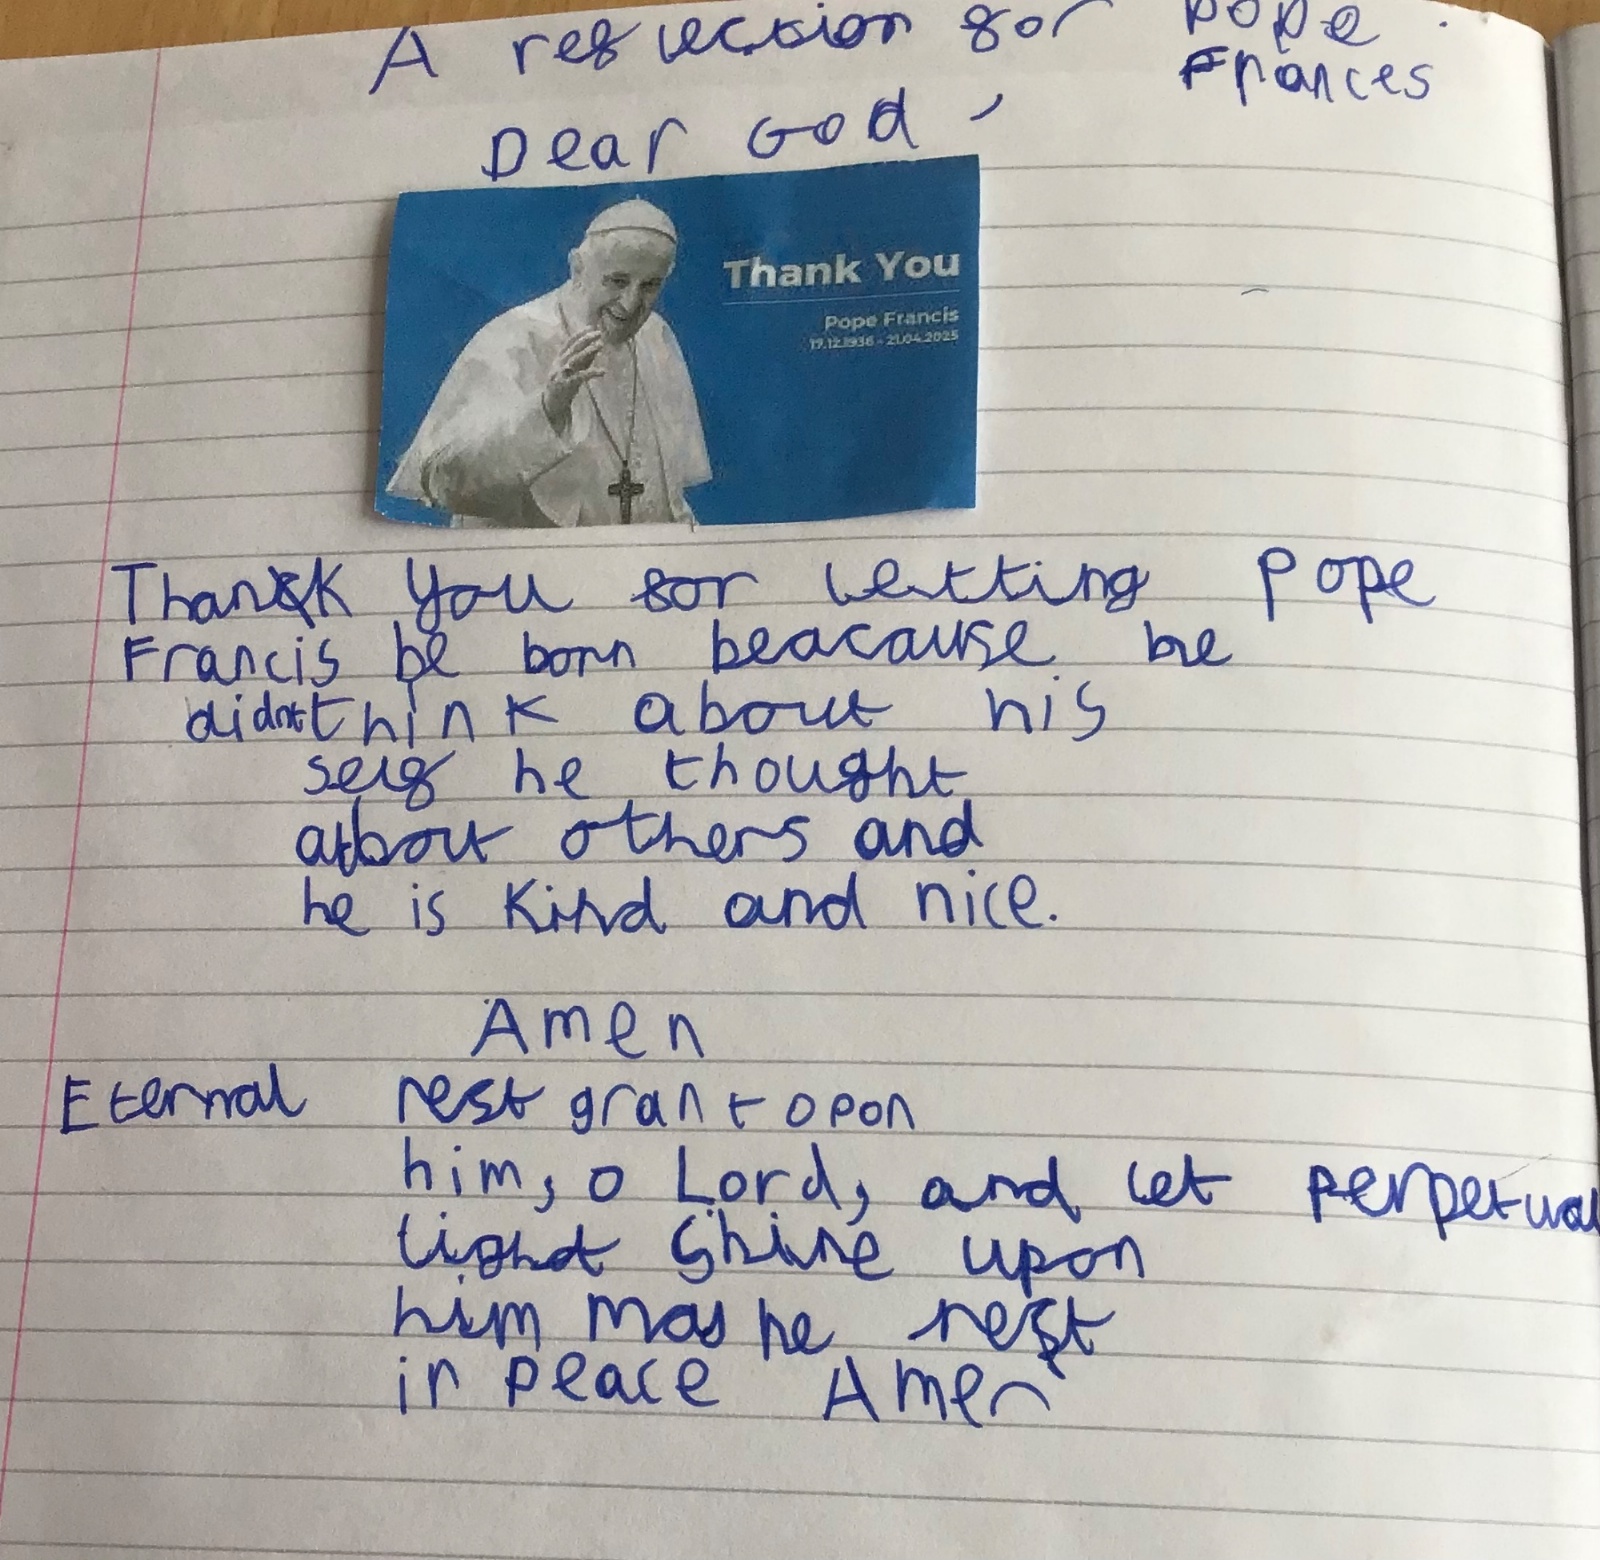 A reflection for Pope
Frances
Dear God,
Thank You
Pope Francis
17.12.1936 - 21.04.2025
Thank You for letting Pope
Francis be born beacause he
didnt think about his
self he thought
about others and
he is kind and nice.
Amen
Eternal rest grant opon
him, o Lord, and let perpetual
light shine upon
him may he rest
in peace Amen